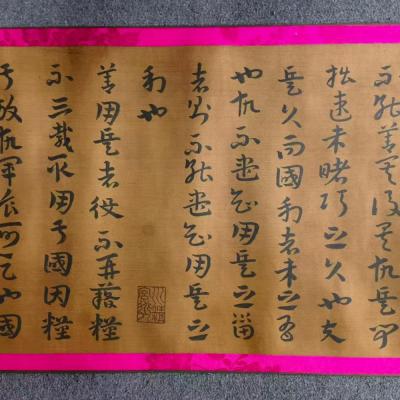 不能善其後矣故兵聞
拙速未睹巧之久也夫
兵久而國利者未之有
也故不盡知用兵之害
者則不能盡知用兵之
利也
善用兵者役不再藉糧
不三載取用于國因糧
于敵故軍食可足也國